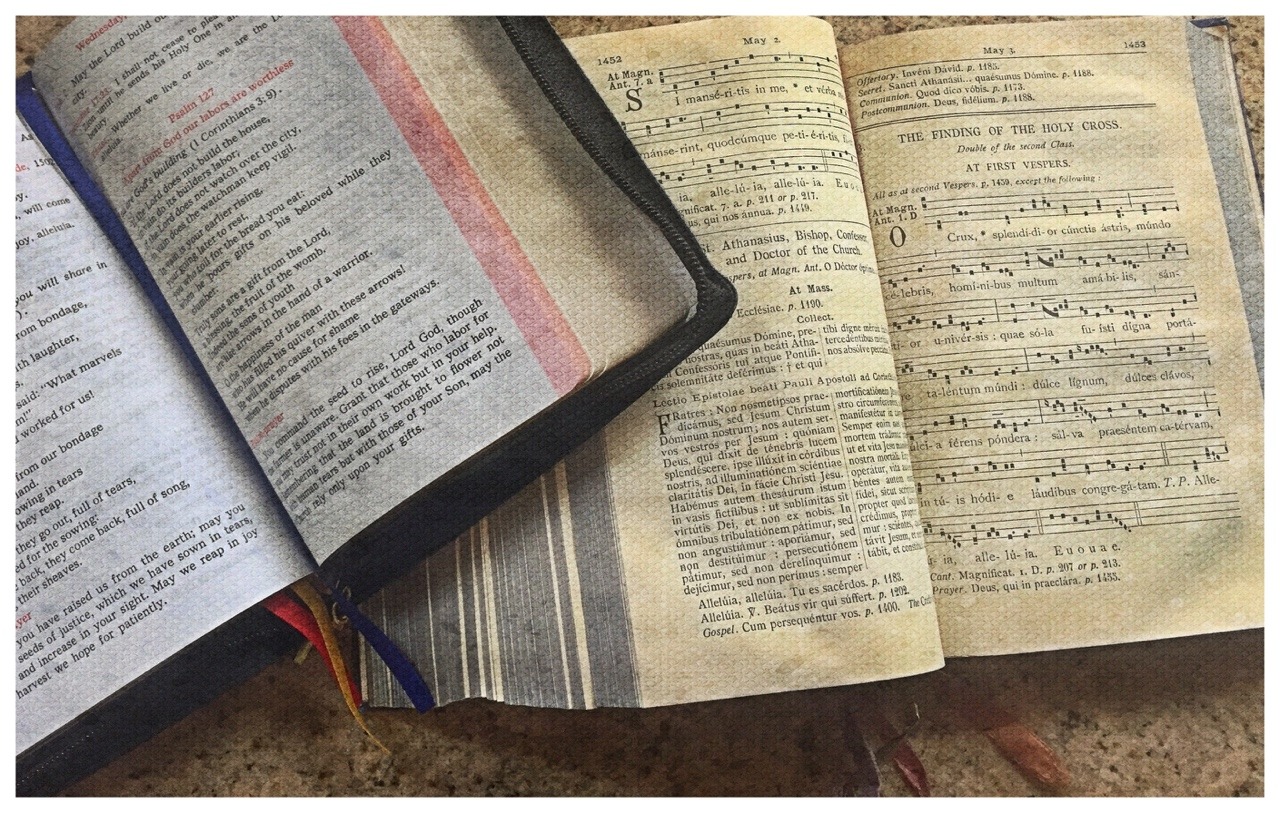 As
ide, 150
oy.
will come
joy, alleluia.
you will share in
).
from bondage,
with laughter,
s.
said: "What marvels
m!"
worked for us!
from our bondage
land.
owing in tears
they reap.
they go out, full of tears,
ed for the sowing:
back, they come back, full of song,
their sheaves.
yer
you have raised us from the earth; may you
seeds of justice, which we have sown in tears,
and increase in your sight. May we reap in joy
harvest we hope for patiently.
Wednesday
May the Lord build ou
city.
I shall not cease to plea
until he sends his Holy One in
beauty
Whether we live or die, we are the L
alleluia.
Psalm 127
Apart from God our labors are worthless
are God's building (1 Corinthians 3: 9).
the Lord does not build the house,
in vain do its builders labor;
if the Lord does not watch over the city,
in vain does the watchman keep vigil.
In vain is your earlier rising,
your going later to rest,
you who toil for the bread you eat:
when he pours gifts on his beloved while they
slumber.
Truly sons are a gift from the Lord,
a blessing, the fruit of the womb.
Indeed the sons of youth
are like arrows in the hand of a warrior.
O the happiness of the man
who has filled his quiver with these arrows!
He will have no cause for shame
when he disputes with his foes in the gateways.
You command the seed to rise, Lord God, though
the farmer is unaware. Grant that those who labor for
you may trust not in their own work but in your help.
Remembering that the land is brought to flower not
with human tears but with those of your Son, may the
Church rely only upon your gifts.
1452
May 2.
At Magn.
Ant. 7. a
S I mansé-ri-tis in me, * et vérba
mánse-rint, quodcúmque pe-ti-é-ri-tis,
alle-lú-ia, alle-lú-ia. E u o
gnificat. 7. a. p. 211 or p. 217.
us, qui nos ánnua. p. 1449.
St. Athanasius, Bishop, Confessor
and Doctor of the Church.
spers, at Magn. Ant. O Dóctor
At Mass.
Ecclésiae. p. 1190.
Collect.
quaésumus Dómine, pre-
nostras, quas in beáti Atha-
Confessóris tui atque Pontífi-
cis solemnitáte deférimus : † et qui
tibi digne méruit
tercedéntibus
nos absólve
Lectio Epistolae beáti Pauli Apostoli ad
FRatres : Non nosmetípsos prae-
dicámus, sed Jesum Christum
Dóminum nostrum ; nos autem ser-
vos vestros per Jesum : quóniam
Deus, qui dixit de ténebris lucem
splendéscere, ipse illúxit in córdibus
nostris, ad illuminatiónem sciéntiae
claritátis Dei, in fácie Christi Jesu.
Habémus autem thesáurum istum
in vasis fictílibus : ut sublímitas sit
virtútis Dei, et non ex nobis. In
ómnibus tribulatiónem pátimur, sed
non angustiámur : aporiámur, sed
non destitúimur : persecutiónem
pátimur, sed non derelínquimur :
dejícimur, sed non perímus : semper
mortificatiónem
stro circumferéntes
manifestétur in
Semper enim nos
mortem trádimur
ut et vita Jesu
nostra mortáli.
operátur, vita
béntes autem
fídei, sicut scriptum
propter quod
crédimus, propter
mur : sciéntes,
távit Jesum, et
tábit, et constítuet
Allelúia, allelúia. Tu es sacérdos. p. 1183.
Allelúia. ℣. Beátus vir qui súffert. p. 1202.
Gospel. Cum persequéntur vos. p. 1400. The
May 3.
1453
Offertory. Invéni David. p. 1485.
Secret. Sancti Athanásii... quaésumus Dómine. p. 1188.
Communion. Quod dico vóbis. p. 1173.
Postcommunion. Deus, fidélium. p. 1188.
THE FINDING OF THE HOLY CROSS.
Double of the second Class.
AT FIRST VESPERS.
All as at second Vespers, p. 1459, except the following :
At Magn.
Ant. 1. D
O Crux, * splendí-di-or cúnctis ástris, múndo
cé-lebris, homí-ni-bus multum amá-bi-lis, sán-
ti-or u-nivér-sis : quae só-la fu-ísti dígna portá-
ta-léntum múndi : dúlce lígnum, dúlces clávos,
dúlci-a férens póndera : sál-va praeséntem ca-térvam,
in tú-is hódi-e láudibus congre-gá-tam. T. P. Alle-
lú-ia, alle-lú-ia. E u o u a e.
Cant. Magnificat. 1. D. p. 207 or p. 213.
Prayer. Deus, qui in praeclára. p. 1455.